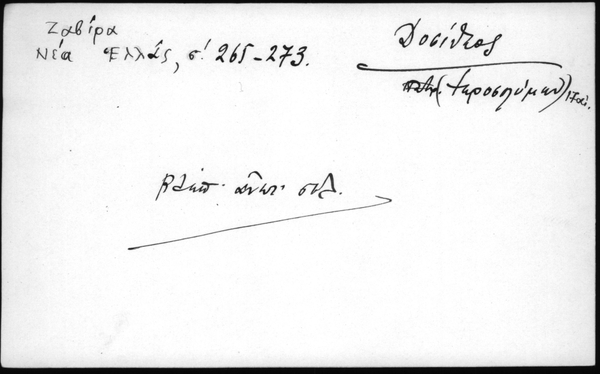 Ζαβίρα
Νέα Ἑλλάς, σ. 265-273.
Δοσίθεος
πατρ. (Ἱεροσολύμων) 17 αἰ.
βλέπ. ἀνωτ. σελ.